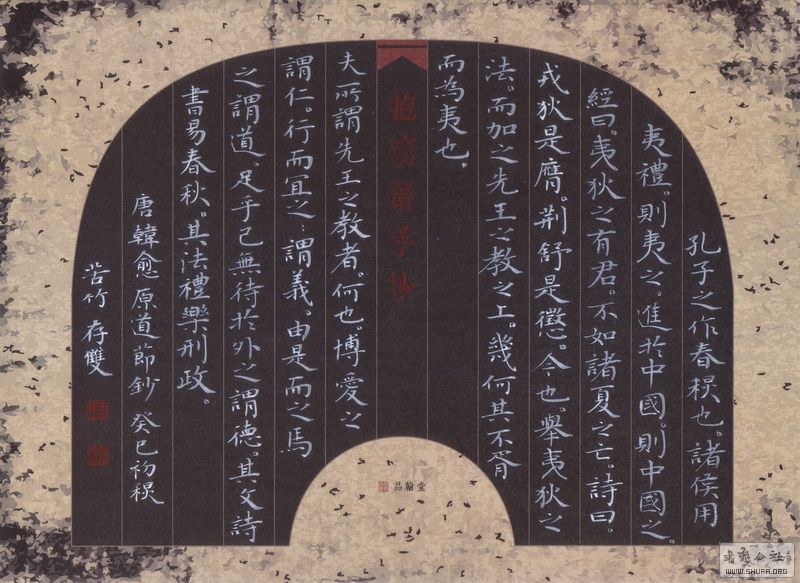 孔子之作春秋也。諸侯用
夷禮。則夷之。進於中國。則中國之。
經曰。夷狄之有君。不如諸夏之亡。詩曰。
戎狄是膺。荊舒是懲。今也。舉夷狄之
法。而加之先王之教之上。幾何其不胥
而為夷也。
齋手抄
夫所謂先王之教者。何也。博愛之
謂仁。行而宜之。謂義。由是而之焉
之謂道。足乎己無待於外之謂德。其文詩
書易春秋。其法禮樂刑政。
唐韓愈原道節鈔 癸巳初秋
苦竹 存雙
品翰堂
WWW.SHUFA.ORG